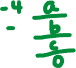 -4 a
- b
c
0